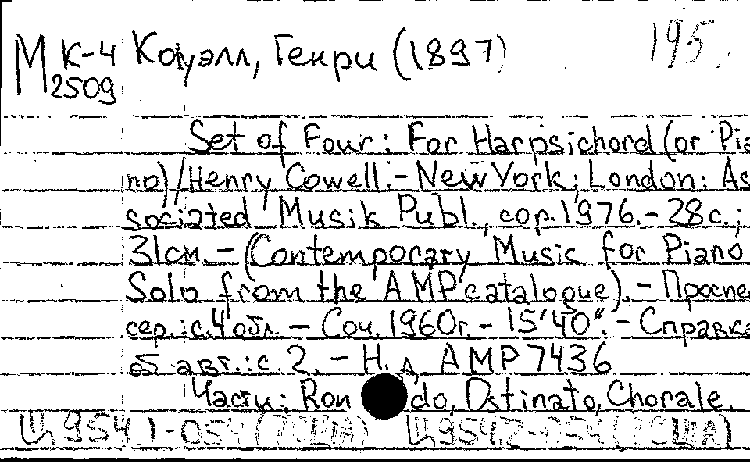 М К-4 Коуэлл, Генри (1897) 195.
2509
Set of Four: For Harpsichord (or Pia
no) / Henry Cowell. - New York; London: As
sociated Musik Publ., cop. 1976. - 28 с.;
31 см. - (Contemporary Music for Piano
Solo from the AMP catalogue). - Проспе
сер.: с. 4 обл. - Соч. 1960 г. - 15'40". - Справка
об авт.: с 2. - Н. д. AMP 7436
Части: Ron do, Ostinato, Chorale.
Щ 954